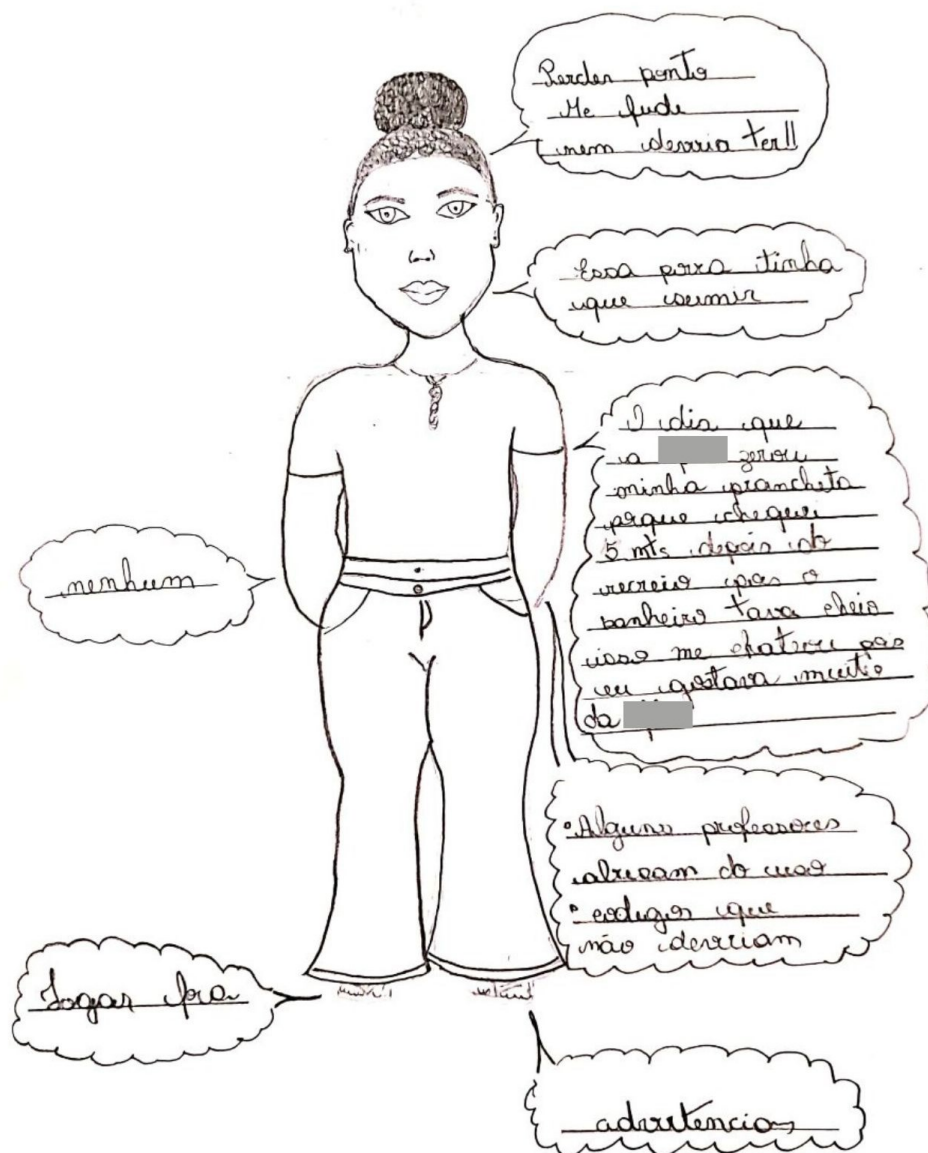 Perder ponto
Me fude
nem devria ter!!
Essa porra tinha
que sumir
O dia que
a zerou
minha prancheta
porque cheguei
5 mts depois do
recreio pois o
banheiro tava cheio
isso me chateou pois
eu gostava muito
da
nenhum
• Alguns professores
abusam do uso
• codigos que
não devriam
Jogar fora
advertencias